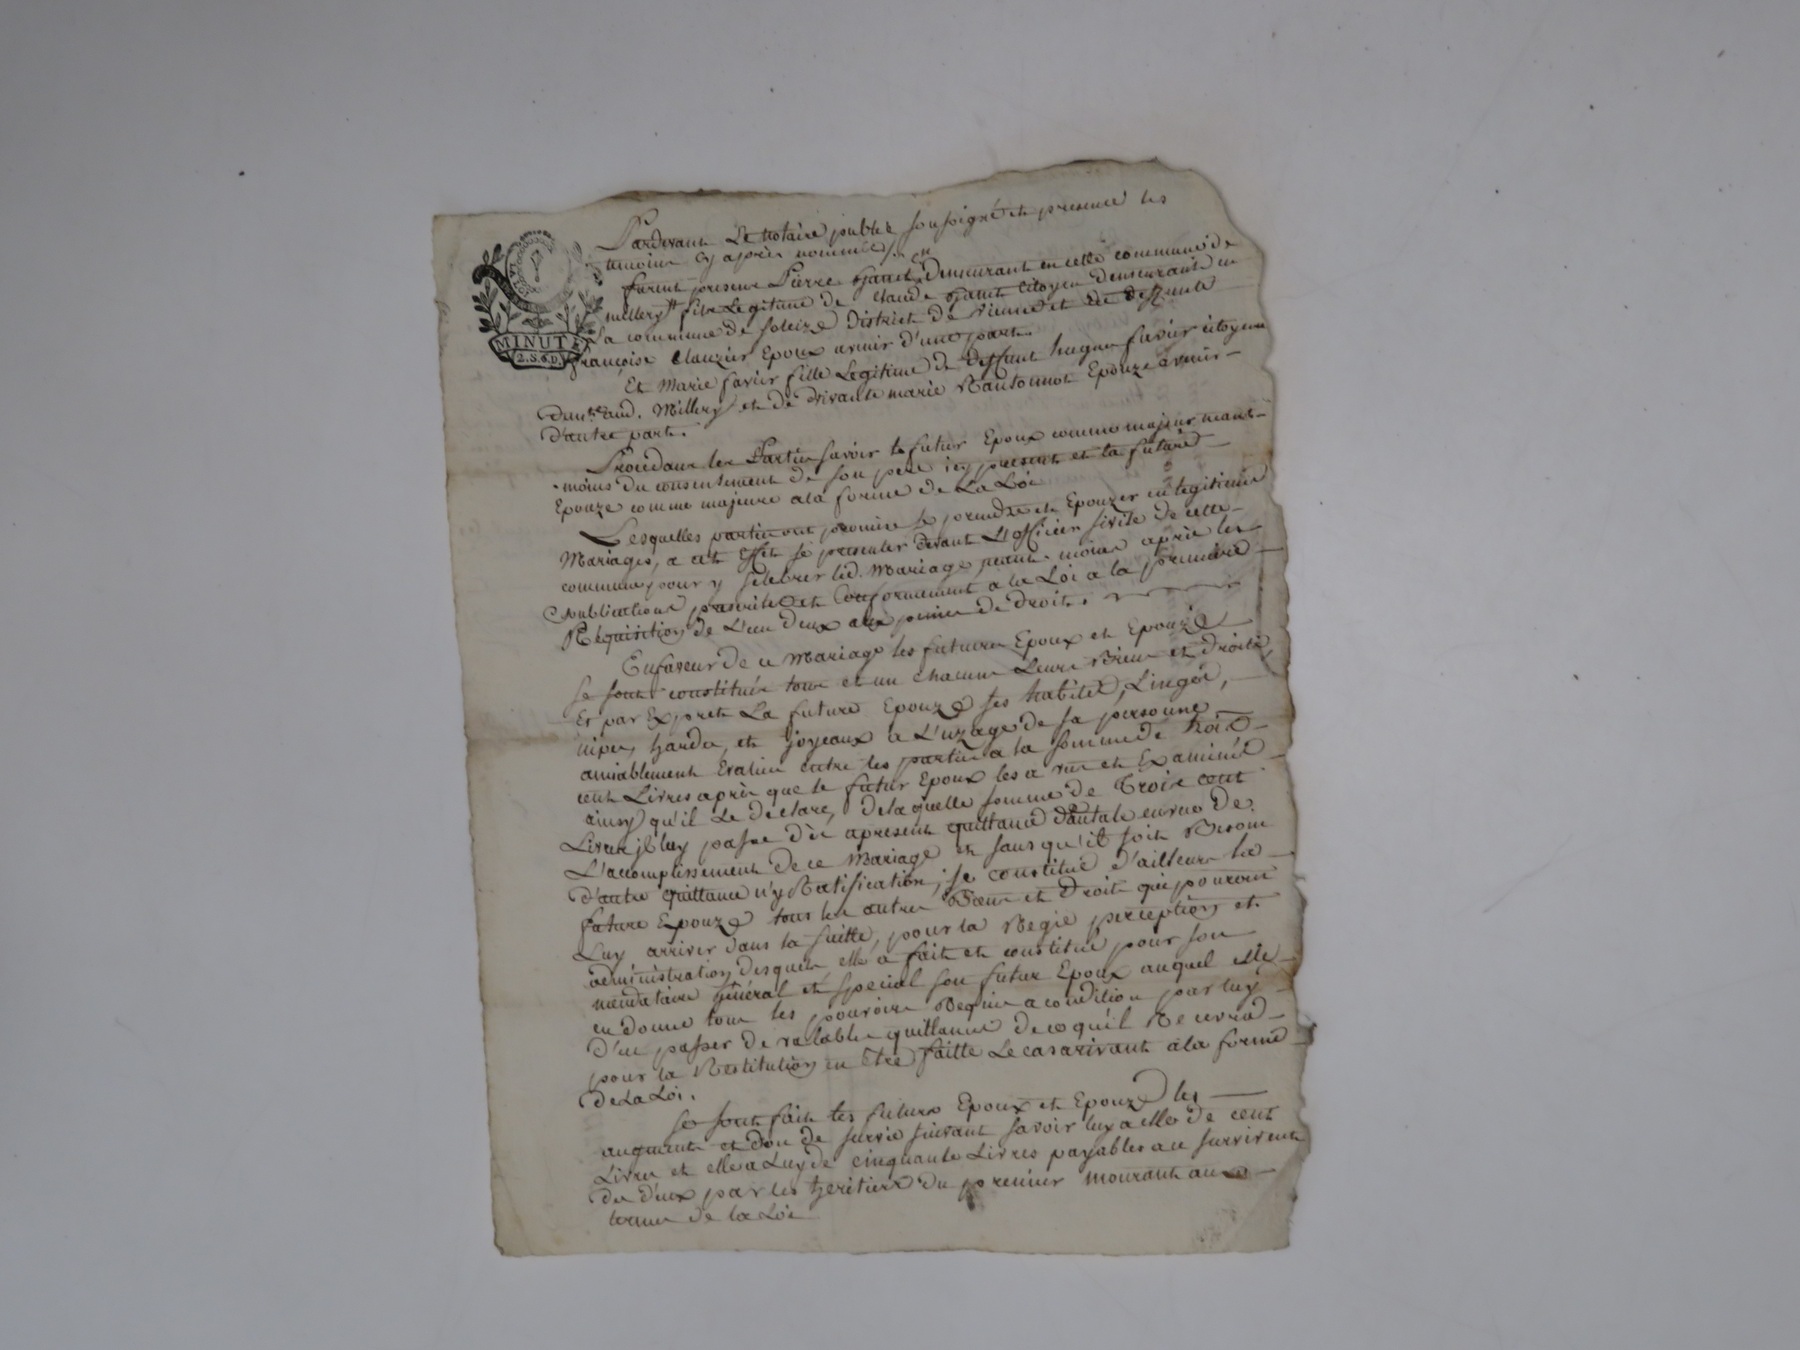 MINUTE
2.S.6.D
Pardevant Le Notaire public soussigné et en presence des
temoins cy après nommés
furent present Pierre demeurant en cette commune de
millery fils Legitime de Claude citoyen demeurant en
La commune de Soleize District de Vienne et de deffunte
françoise Clauzier Epoux avenir d'une part.
Et Marie favier fille Legitime de deffunt hugue favier citoyen
dud. Millery et de vivante marie Epouze avenir
d'autre part.
Procedant les Parties savoir le futur Epoux comme majeur neant-
moins du consentement de son pere icy present et la future
Epouze comme majeure a la forme de La Loi
Lesquelles parties ont promis se prendre et Epouzer en legitime
Mariage, a cet Effet se presenter devant L'officier sivile de cette
commune pour y selebrer led. Mariage neant-moins après les
publications prescrites et Conformement a la Loi a la premiere
Requisition de L'un deux aux peines de droit.
En faveur de ce Mariage les futures Epoux et Epouze
se sont constitués tous et un chacuns Leurs Biens et droits,
Et par Exprets La future Epouze ses habits, Linges,
nipes, hardes, et joyeaux a L'uzage de sa personne
amiablement Evalués entre les parties a la somme de trois
cent Livres après que le futur Epoux les a vus et Examinés
ainsy qu'il Le declare, de laquelle somme de Trois cent
Livres il luy passe dès apresent quittance en vue de
L'accomplissement de ce Mariage et sans qu'il soit Besoin
d'autre quittance n'y Ratification; se constitue d'ailleurs la
future Epouze tous les autres Biens et Droits qui pouront
Luy arriver dans la suitte, pour la Regie perception et
administration desquels elle a fait et constitué pour son
mandataire général et special son futur Epoux auquel elle
en donne tous les pouvoirs Requis a condition par luy
d'en passer de valables quittances de ce qu'il Recevra
pour la Restitution en être faitte Le cas arivant a la forme
de La Loi.
se sont fait les futurs Epoux et Epouze les
augments et don de survie suivant savoir luy a elle de cent
Livres et elle a Luy de cinquante Livres payables au survivent
des deux par les heritiers du premier mourant aux
termes de la Loi